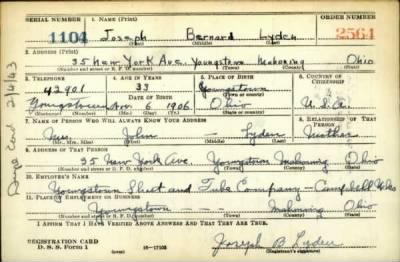 SERIAL NUMBER 1. NAME (Print) ORDER NUMBER
1104 Joseph Bernard Lyden 2564
(First) (Middle) (Last)
2. ADDRESS (Print)
35 New York Ave. Youngstown Mahoning Ohio
(Number and street or R. F. D. number) (Town) (County) (State)
3. TELEPHONE 4. AGE IN YEARS 5. PLACE OF BIRTH 6. COUNTRY OF CITIZENSHIP
42901 33 Youngstown
DATE OF BIRTH (Town or county)
Youngstown Nov 6 1906 Ohio U.S.A.
(Exchange) (Number) (Mo.) (Day) (Yr.) (State or country)
7. NAME OF PERSON WHO WILL ALWAYS KNOW YOUR ADDRESS 8. RELATIONSHIP OF THAT PERSON
Mrs. John — Lyden Mother
(Mr., Mrs., Miss) (First) (Middle) (Last)
9. ADDRESS OF THAT PERSON
35 New York Ave. Youngstown Mahoning Ohio
(Number and street or R. F. D. number) (Town) (County) (State)
10. EMPLOYER'S NAME
Youngstown Sheet and Tube Company — Campbell
11. PLACE OF EMPLOYMENT OR BUSINESS
Youngstown — Mahoning Ohio
(Number and street or R. F. D. number) (Town) (County) (State)
I AFFIRM THAT I HAVE VERIFIED ABOVE ANSWERS AND THAT THEY ARE TRUE.
REGISTRATION CARD Joseph B Lyden
D. S. S. Form 1 (over) 16—17105 (Registrant's signature)
2/4/43